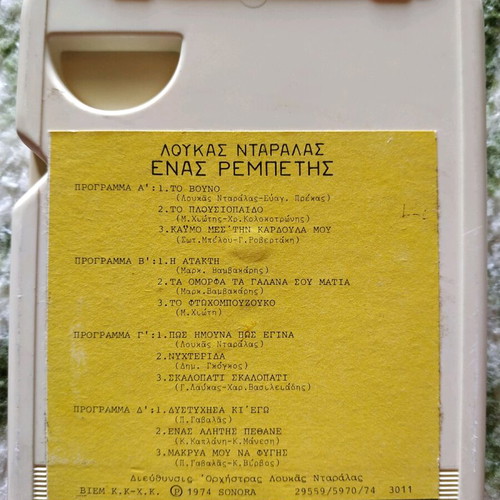 ΛΟΥΚΑΣ ΝΤΑΡΑΛΑΣ
ΕΝΑΣ ΡΕΜΠΕΤΗΣ
ΠΡΟΓΡΑΜΜΑ Α': 1.ΤΟ ΒΟΥΝΟ
(Λουκᾶς Νταράλας-Εὐαγ. Πρέκας)
2.ΤΟ ΠΛΟΥΣΙΟΠΑΙΔΟ
(Μ.Χιώτης-Χρ.Κολοκοτρώνης)
3.ΚΑΫΜΟ ΜΕΣ'ΤΗΝ ΚΑΡΔΟΥΛΑ ΜΟΥ
(Σωτ.Μπέλου-Γ.Ροβερτάκη)
ΠΡΟΓΡΑΜΜΑ Β': 1.Η ΑΤΑΚΤΗ
(Μαρκ. Βαμβακάρης)
2.ΤΑ ΟΜΟΡΦΑ ΤΑ ΓΑΛΑΝΑ ΣΟΥ ΜΑΤΙΑ
(Μαρκ.Βαμβακάρης)
3.ΤΟ ΦΤΩΧΟΜΠΟΥΖΟΥΚΟ
(Μ.Χιώτη)
ΠΡΟΓΡΑΜΜΑ Γ': 1.ΠΩΣ ΗΜΟΥΝΑ ΠΩΣ ΕΓΙΝΑ
(Λουκᾶς Νταράλας)
2.ΝΥΧΤΕΡΙΔΑ
(Δημ. Γκόγκος)
3.ΣΚΑΛΟΠΑΤΙ ΣΚΑΛΟΠΑΤΙ
(Γ.Λαύκας-Χαρ.Βασιλειάδης)
ΠΡΟΓΡΑΜΜΑ Δ': 1.ΔΥΣΤΥΧΗΣΑ ΚΙ'ΕΓΩ
(Π.Γαβαλᾶς)
2.ΕΝΑΣ ΑΛΗΤΗΣ ΠΕΘΑΝΕ
(Κ.Καπλάνη-Κ.Μάνεση)
3.ΜΑΚΡΥΑ ΜΟΥ ΝΑ ΦΥΓΗΣ
(Π.Γαβαλᾶς-Κ.Βίρβος)
Διεύθυνσις Ὀρχήστρας Λουκᾶς Νταράλας
ΒΙΕΜ Κ.Κ-Χ.Κ. Ⓟ 1974 SONORA 29559/5970/74 3011